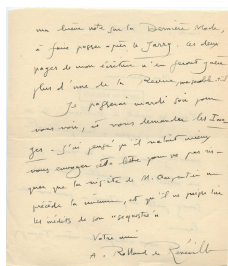 ma brève note sur la Dernière Mode,
à faire passer après le Jarry. Les deux
pages de mon écriture n'en feront guère
plus d'une de la Revue,
Je passerai mardi soir pour
vous voir, et vous demander les
J'ai pensé qu'il valait mieux
vous envoyer cette lettre pour ne pas
que la visite de M.
précède la mienne, et qu'il ne
les inédits de son "séquestre"
Votre ami
A. Rolland de Renéville